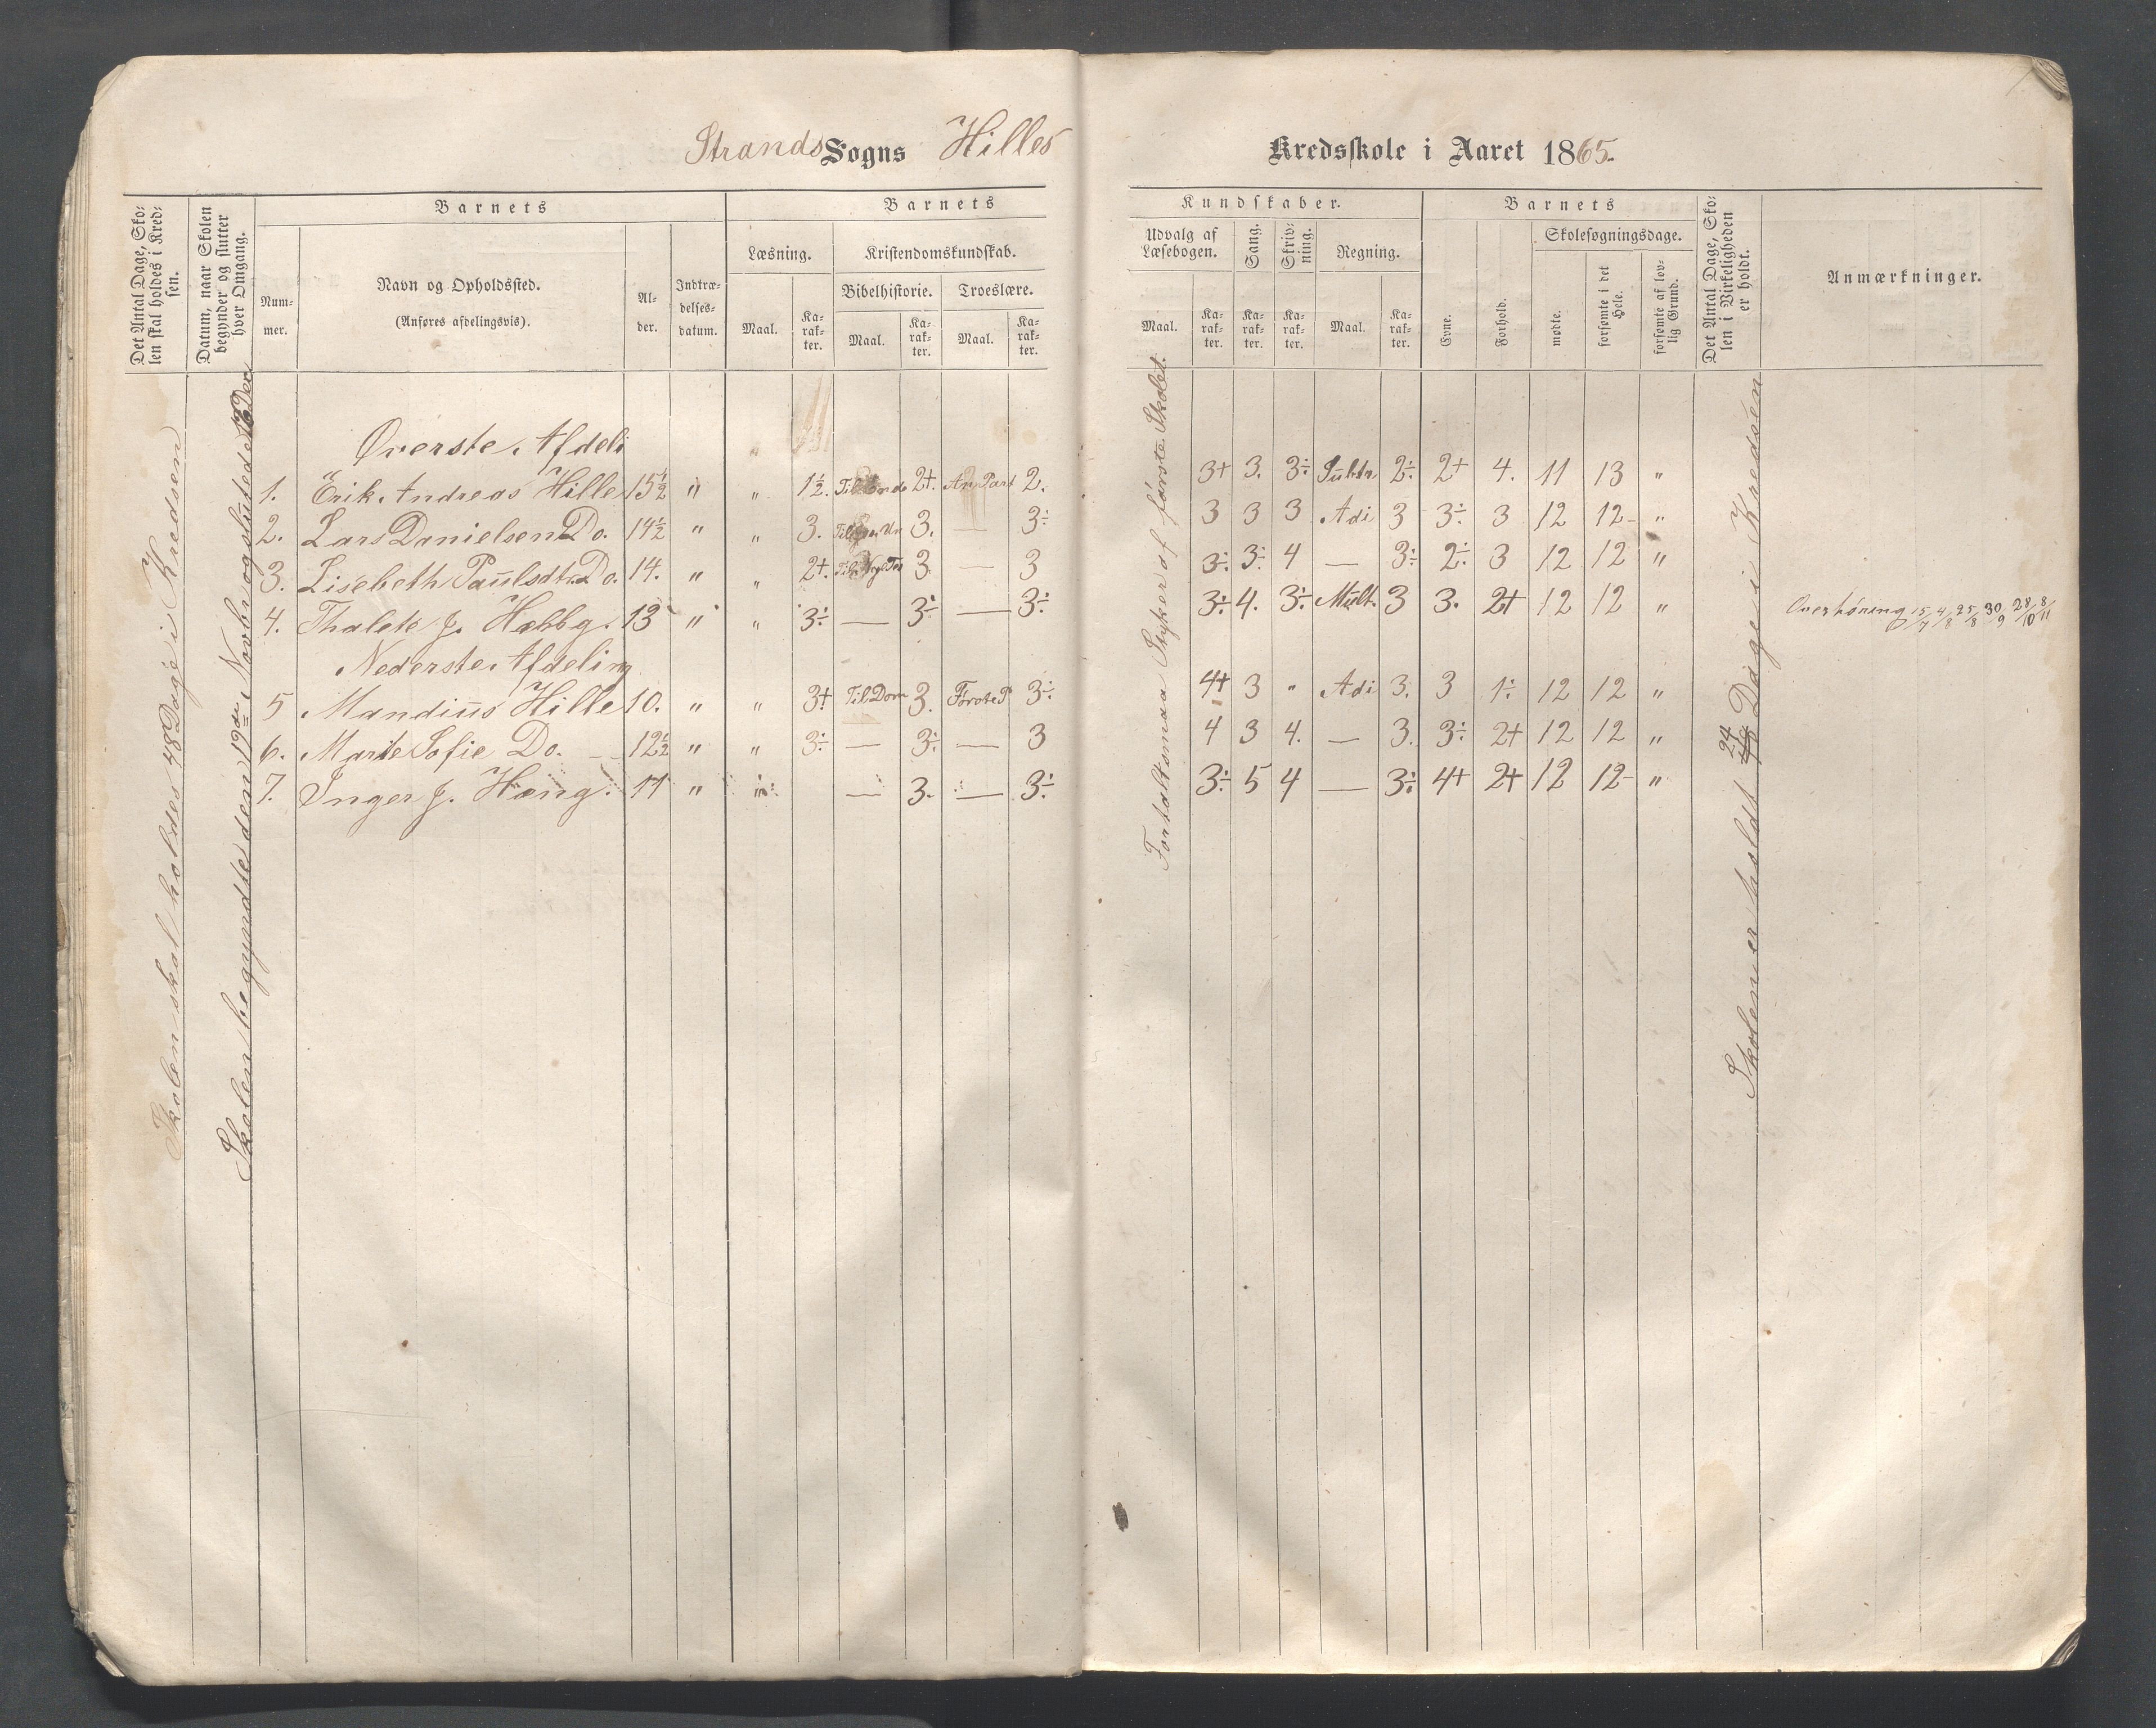 Strands Sogns Hilles Kredsskole i Aaret 1865.
Det Antal Dage, Sko-
len skal holdes i Kred-
sen.
Datum, naar Skolen
begynder og slutter
hver Omgang.
Barnets
Num-
mer.
Navn og Opholdssted.
(Anføres afdelingsvis).
Al-
der.
Indtræ-
delses-
datum.
Barnets
Læsning.
Maal.
Ka-
rak-
ter.
Kristendomskundskab.
Bibelhistorie.
Maal.
Ka-
rak-
ter.
Troeslære.
Maal.
Ka-
rak-
ter.
Kundskaber.
Udvalg af
Læsebogen.
Maal.
Ka-
rak-
ter.
Sang.
Ka-
rak-
ter.
Skriv-
ning.
Ka-
rak-
ter.
Regning.
Maal.
Ka-
rak-
ter.
Barnets
Evne.
Forhold.
Skolesøgningsdage.
mødte.
forsømte i det
Hele.
forsømte af lov-
lig Grund.
Det Antal Dage, Sko-
len i Virkeligheden
er holdt.
Anmærkninger.
Skolen skal holdes 48 Dage i Kredsen
Skolen begyndte den 19de Novbr og sluttede 18 Dec
Fortalt smaa Stykker af første Skolet.
Skolen er holdt 24 Dage i Kredsen
Øverste Afdeli
1. Erik Andreas Hille 15½ " " 1½. Til Ende 2+. An. Part 2. 3+ 3. 3÷ Subtr. 2÷ 2+ 4. 11 13 "
2. Lars Danielsen Do. 14½ " " 3. 3. — 3÷ 3 3 3 Adi 3 3÷ 3 12 12 "
3. Lisebeth Paulsdtr Do. 14. " " 2+. 3. — 3 3÷ 3÷ 4 — 3÷ 2÷ 3 12 12 "
4. Thalete J. Hebbg. 13 " " 3÷ — 3÷ — 3÷ 3÷ 4. 3÷ Mult. 3 3. 2+ 12 12 " Overhøring 15/7 4/8 25/8 30/9 28/10 8/11
Nederste Afdeling
5 Mandius Hille 10. " " 3+ Til Dom 3. Første P 3÷ 4+ 3 " Adi 3. 3 1÷ 12 12 "
6. Marite Sofie Do. 12½ " " 3÷ — 3÷ — 3 4 3 4. — 3. 3÷ 2+ 12 12 "
7. Inger J. Høeng. 11 " — 3. — 3÷ 3÷ 5 4 — 3÷ 4+ 2+ 12 12 "